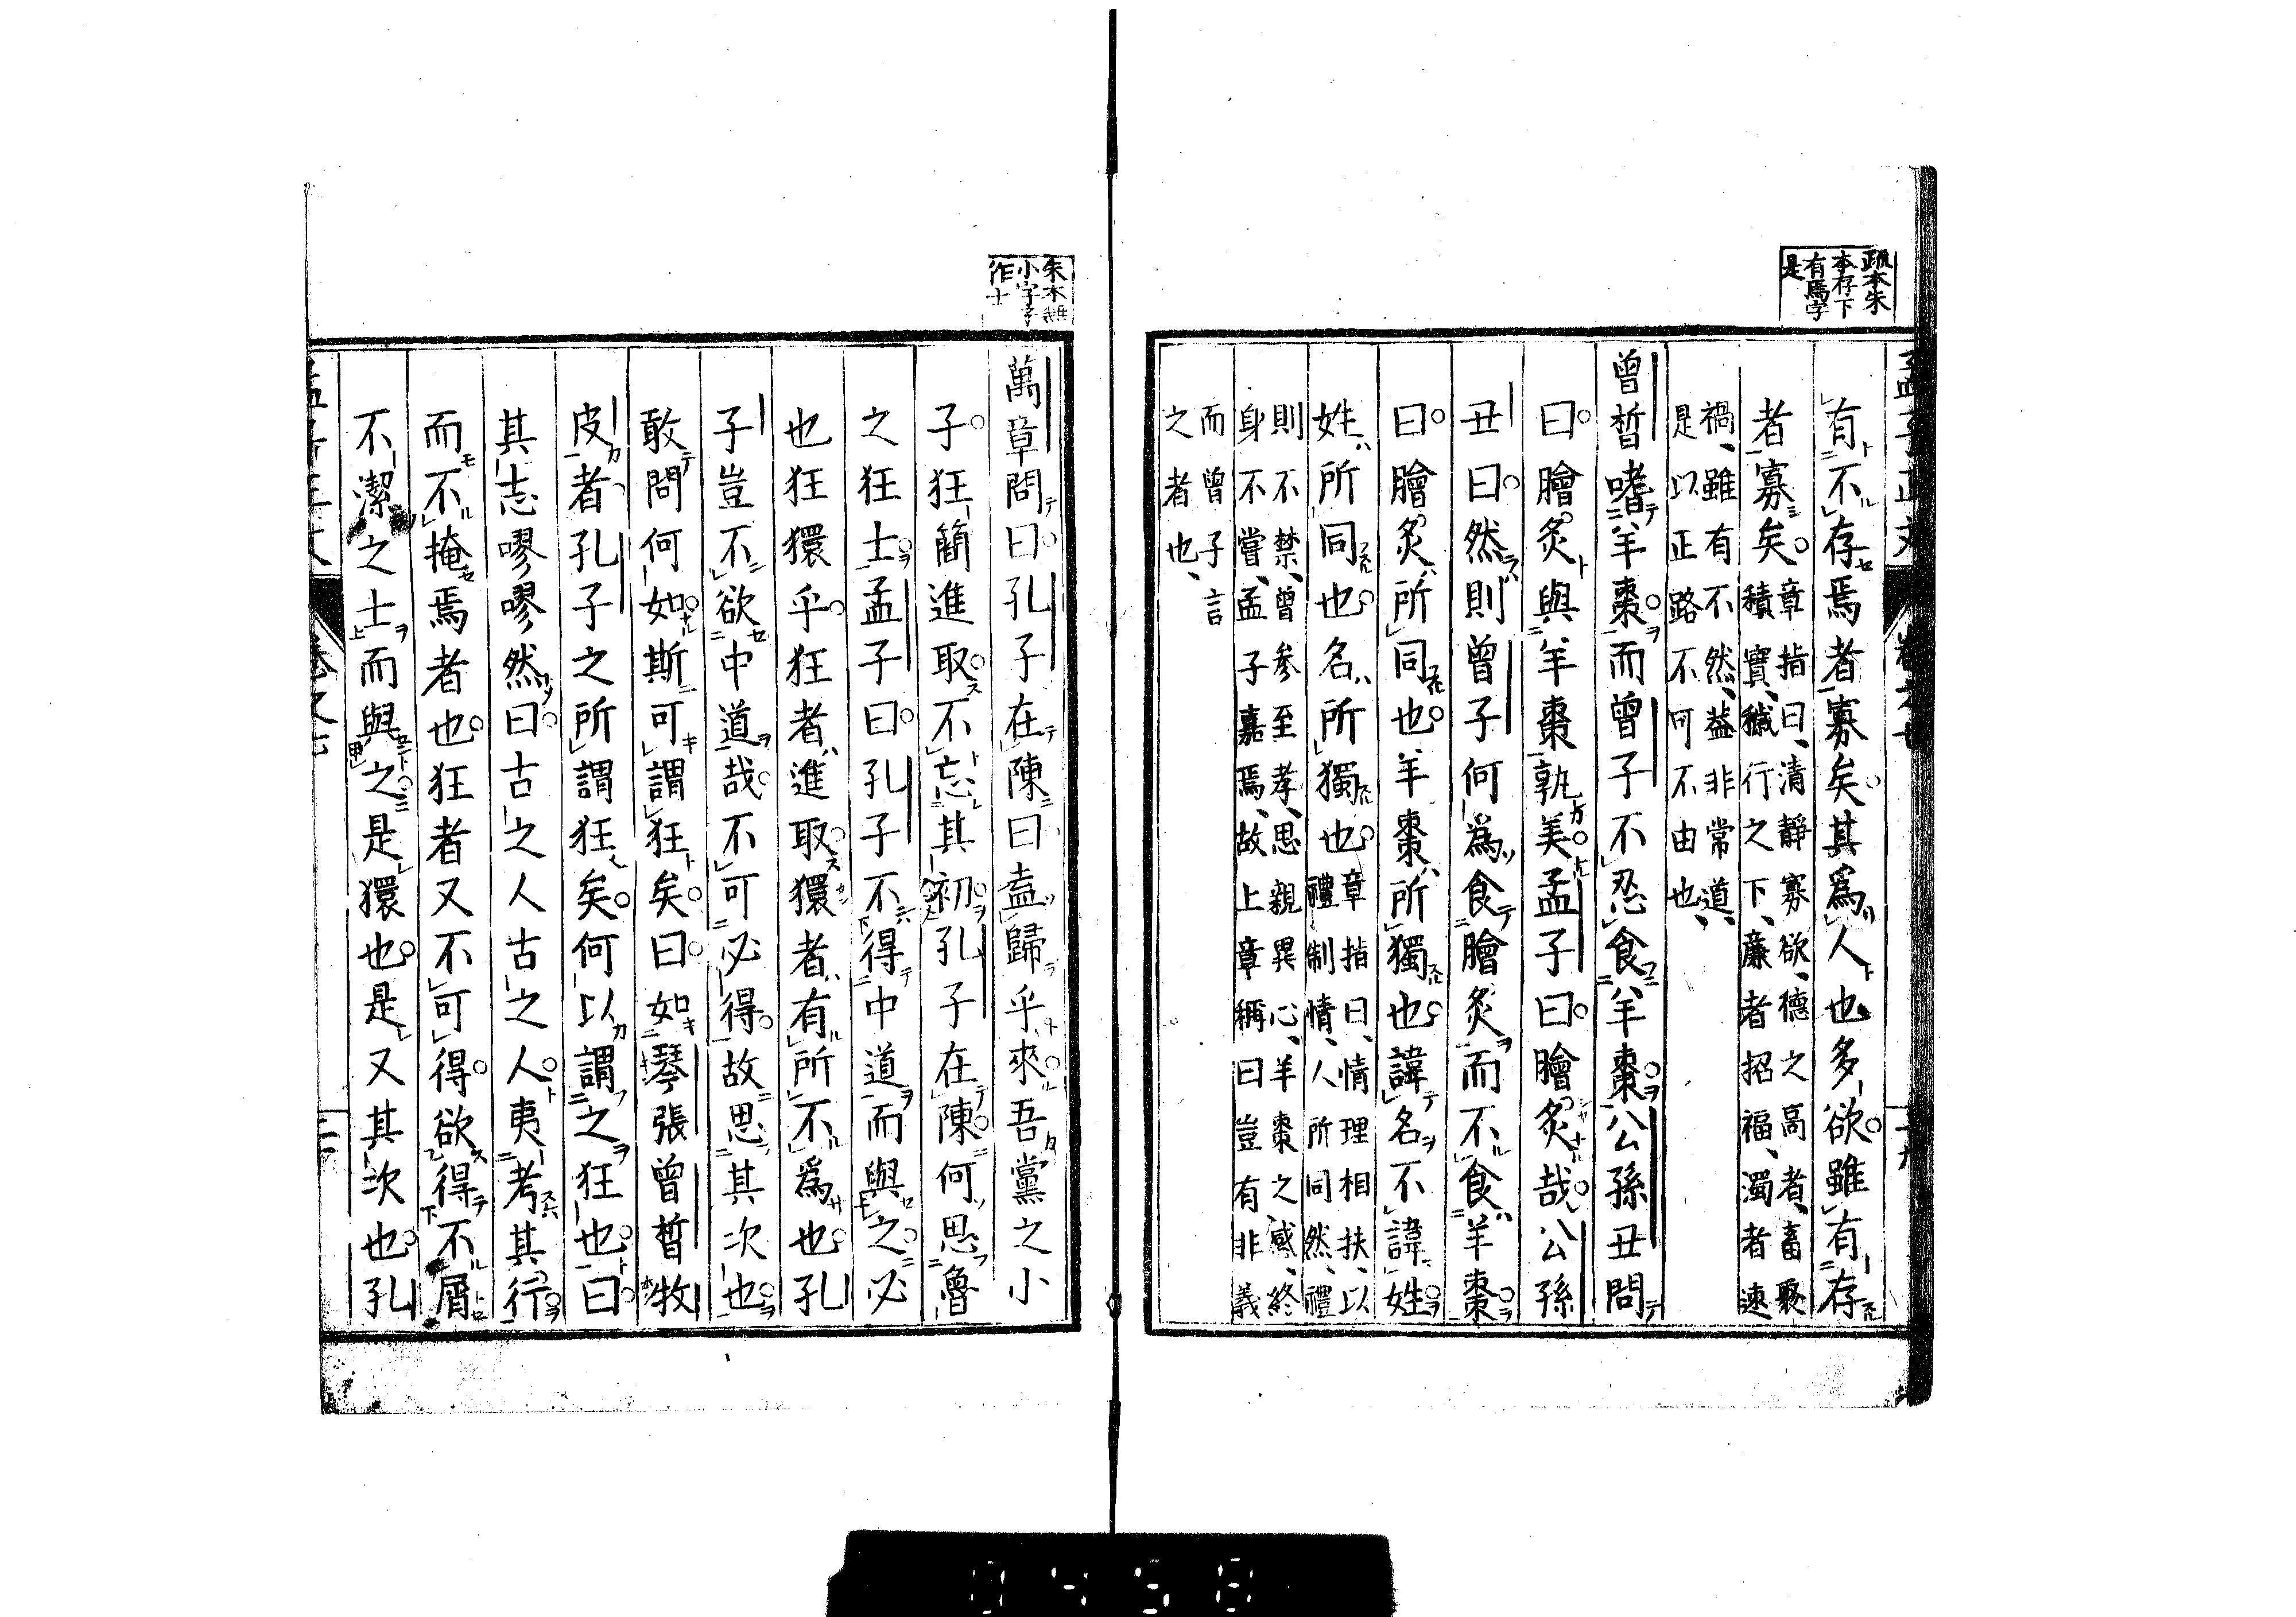 疏本朱
本存下
有焉字
是
有不存焉者寡矣其爲人也多欲雖有存
者寡矣章指曰清靜寡欲德之高者畜聚
積實穢行之下廉者招福濁者速
禍雖有不然蓋非常道
是以正路不可不由也
曾晳嗜羊棗而曾子不忍食羊棗公孫丑問
曰膾炙與羊棗孰美孟子曰膾炙哉公孫
丑曰然則曾子何爲食膾炙而不食羊棗
曰膾炙所同也羊棗所獨也諱名不諱姓
姓所同也名所獨也章指曰情理相扶以
禮制情人所同然禮
則不禁曾參至孝思親異心羊棗之感終
身不嘗孟子嘉焉故上章稱曰豈有非義
而曾子言
之者也
朱本無
小字子
作士
萬章問曰孔子在陳曰盍歸乎來吾黨之小
子狂簡進取不忘其初孔子在陳何思魯
之狂士孟子曰孔子不得中道而與之必
也狂獧乎狂者進取獧者有所不爲也孔
子豈不欲中道哉不可必得故思其次也
敢問何如斯可謂狂矣曰如琴張曾晳牧
皮者孔子之所謂狂矣何以謂之狂也曰
其志嘐嘐然曰古之人古之人夷考其行
而不掩焉者也狂者又不可得欲得不屑
不潔之士而與之是獧也是又其次也孔